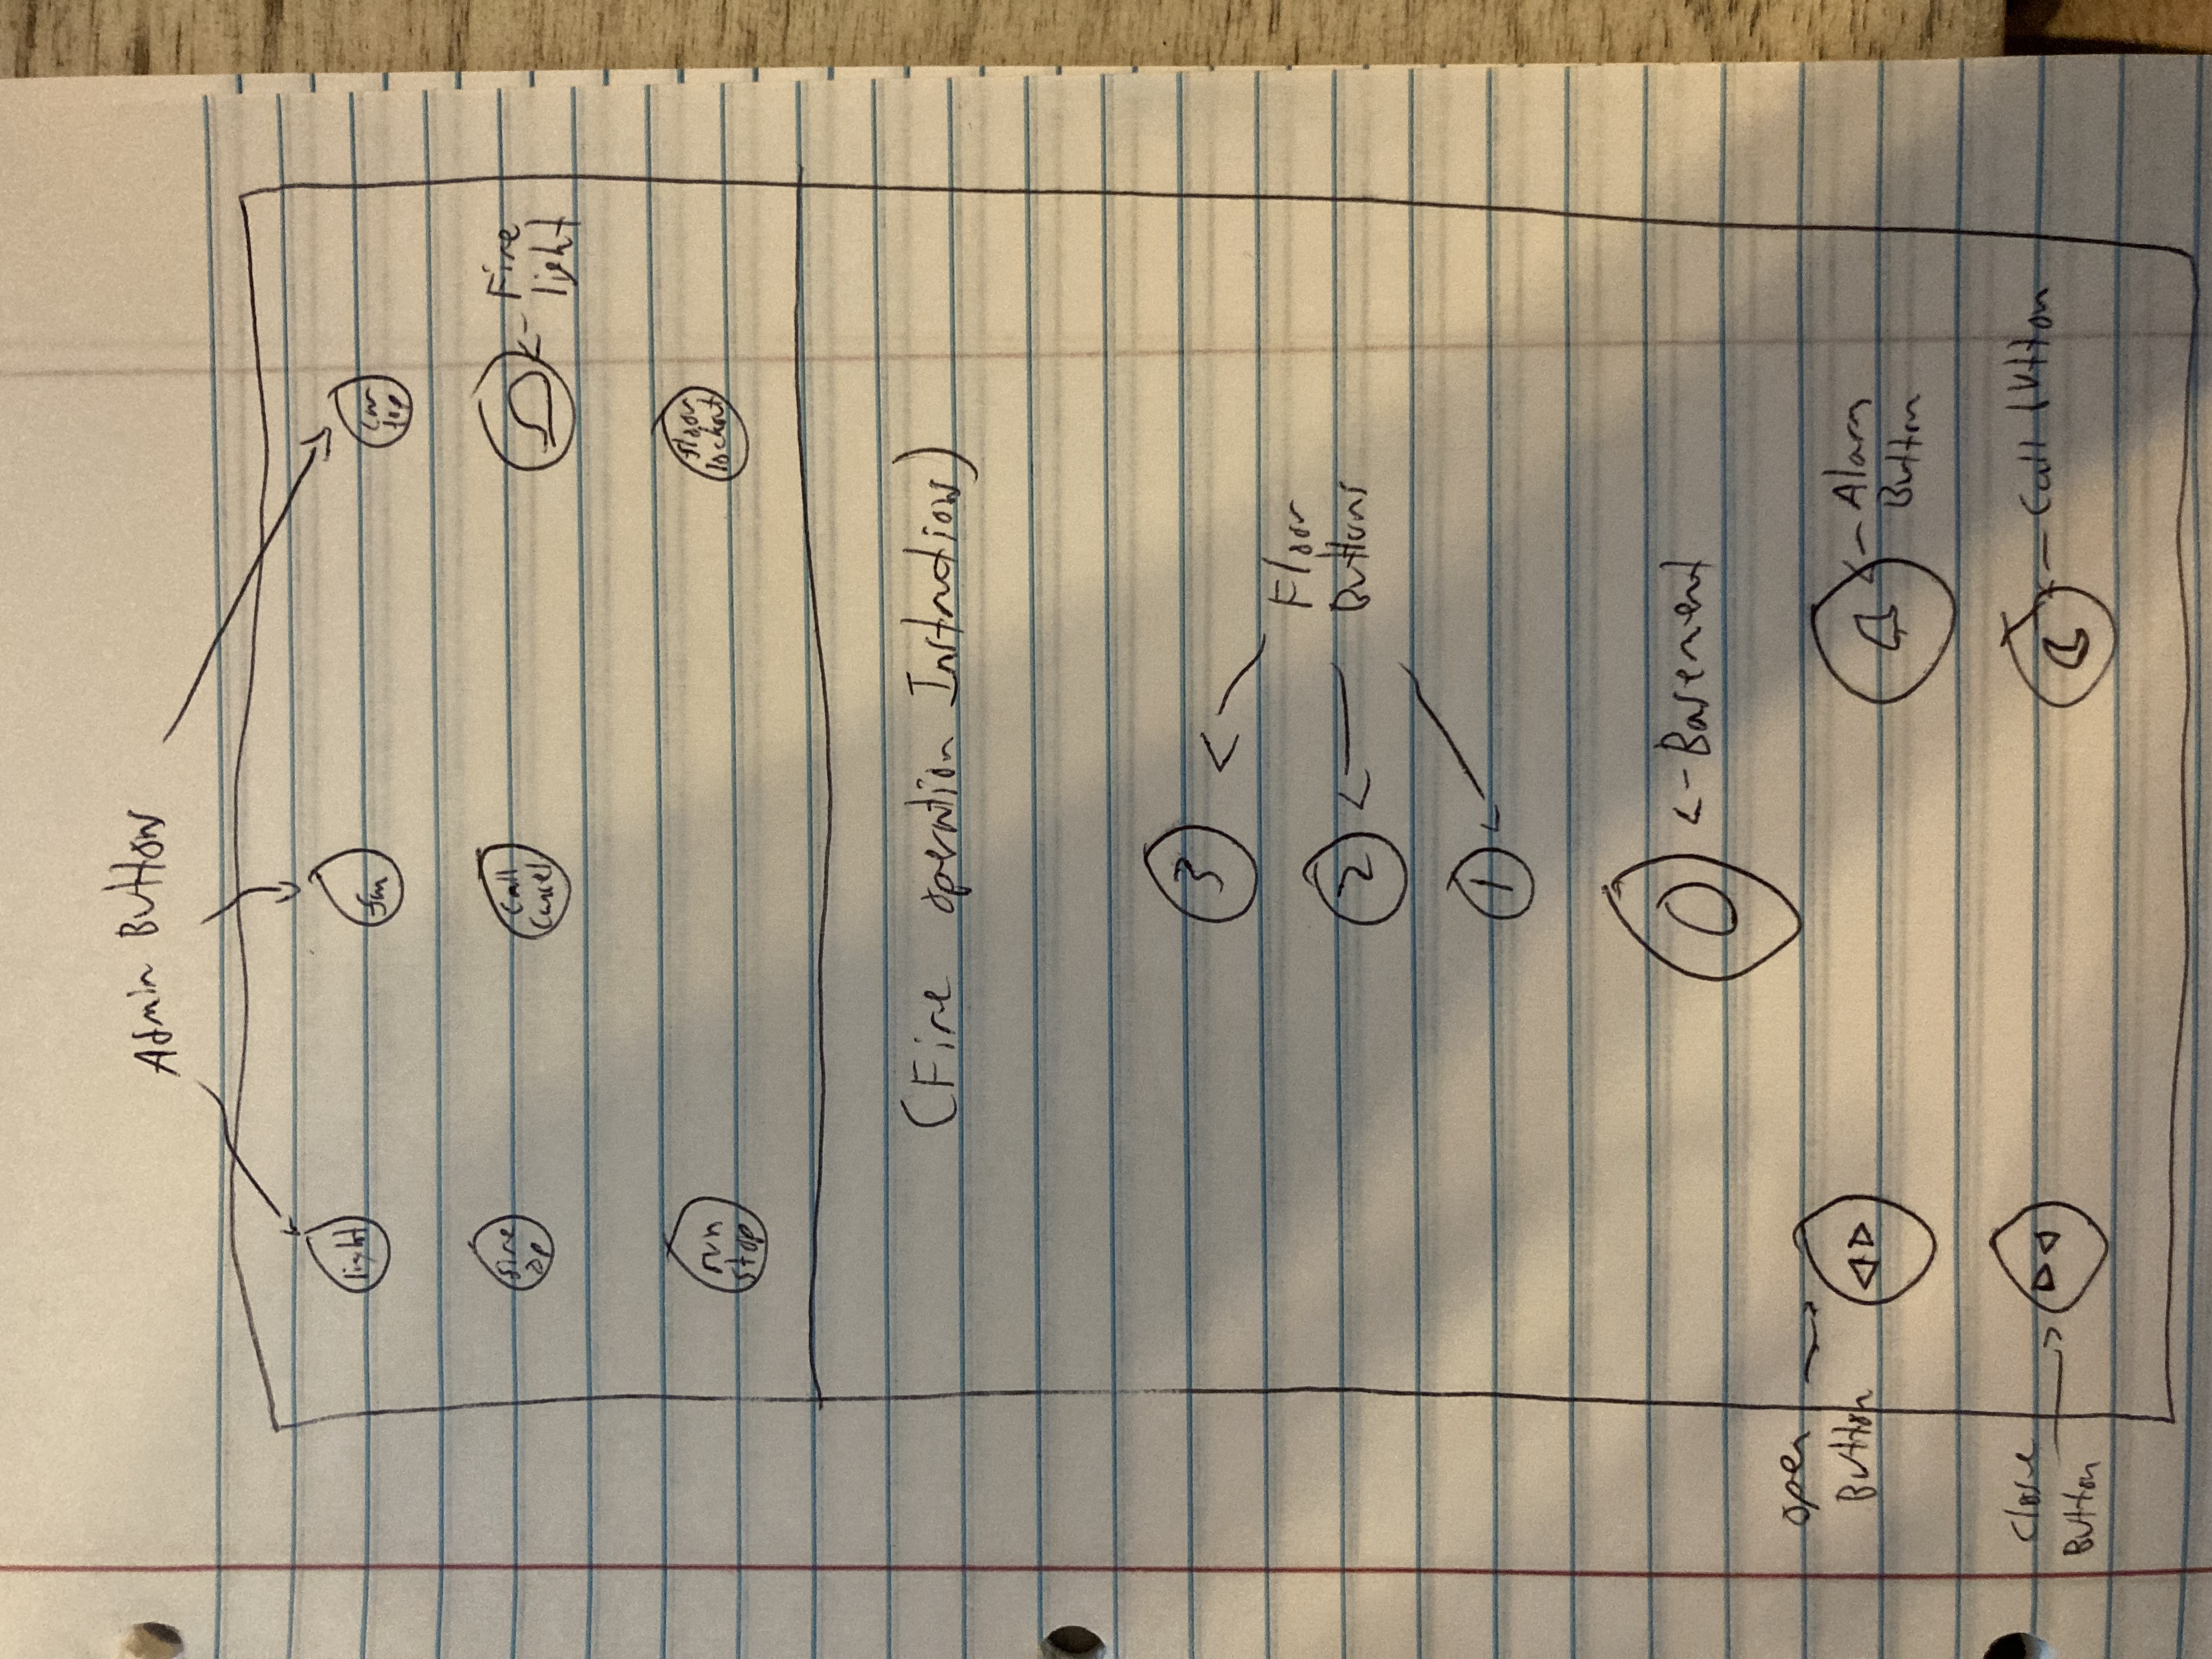 Admin Buttons
light
fan
car
top
fire
op
Call
Cancel
Fire
light
run
stop
floor
lockout
(Fire operation Instructions)
3
Floor
Buttons
2
1
0
Basement
open
Button
Alarm
Button
Close
Button
Call bUtton